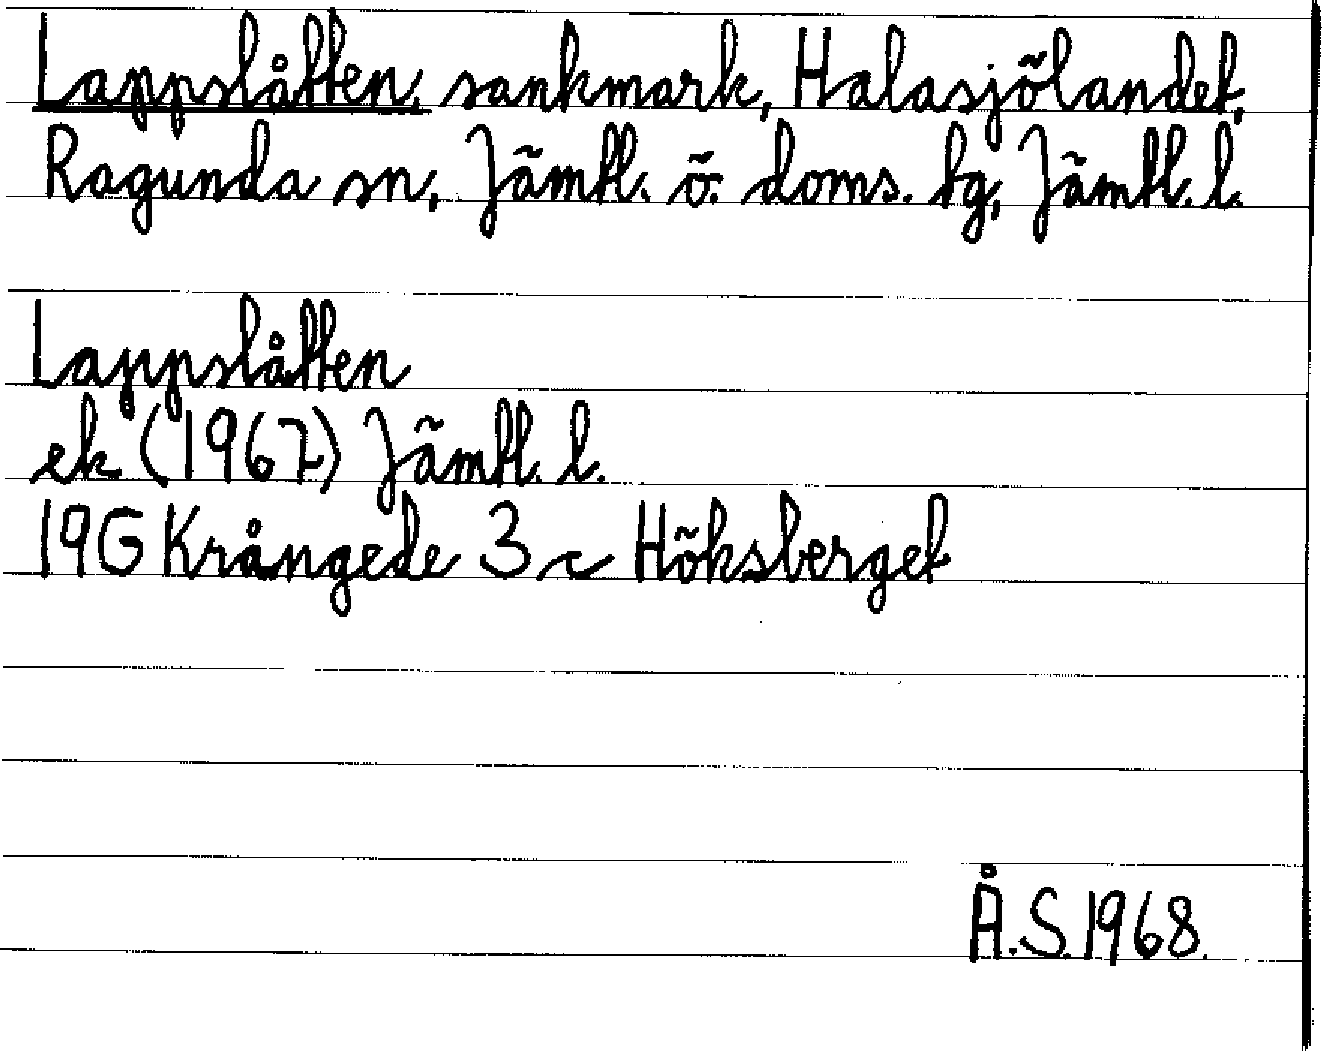 Lappslåtten, sankmark, Halasjölandet,
Ragunda sn, Jämtl. ö. doms. tg, Jämtl. l.
Lappslåtten
ek (1967) Jämtl. l.
19G Krångede 3 c Höksberget
Å.S. 1968.